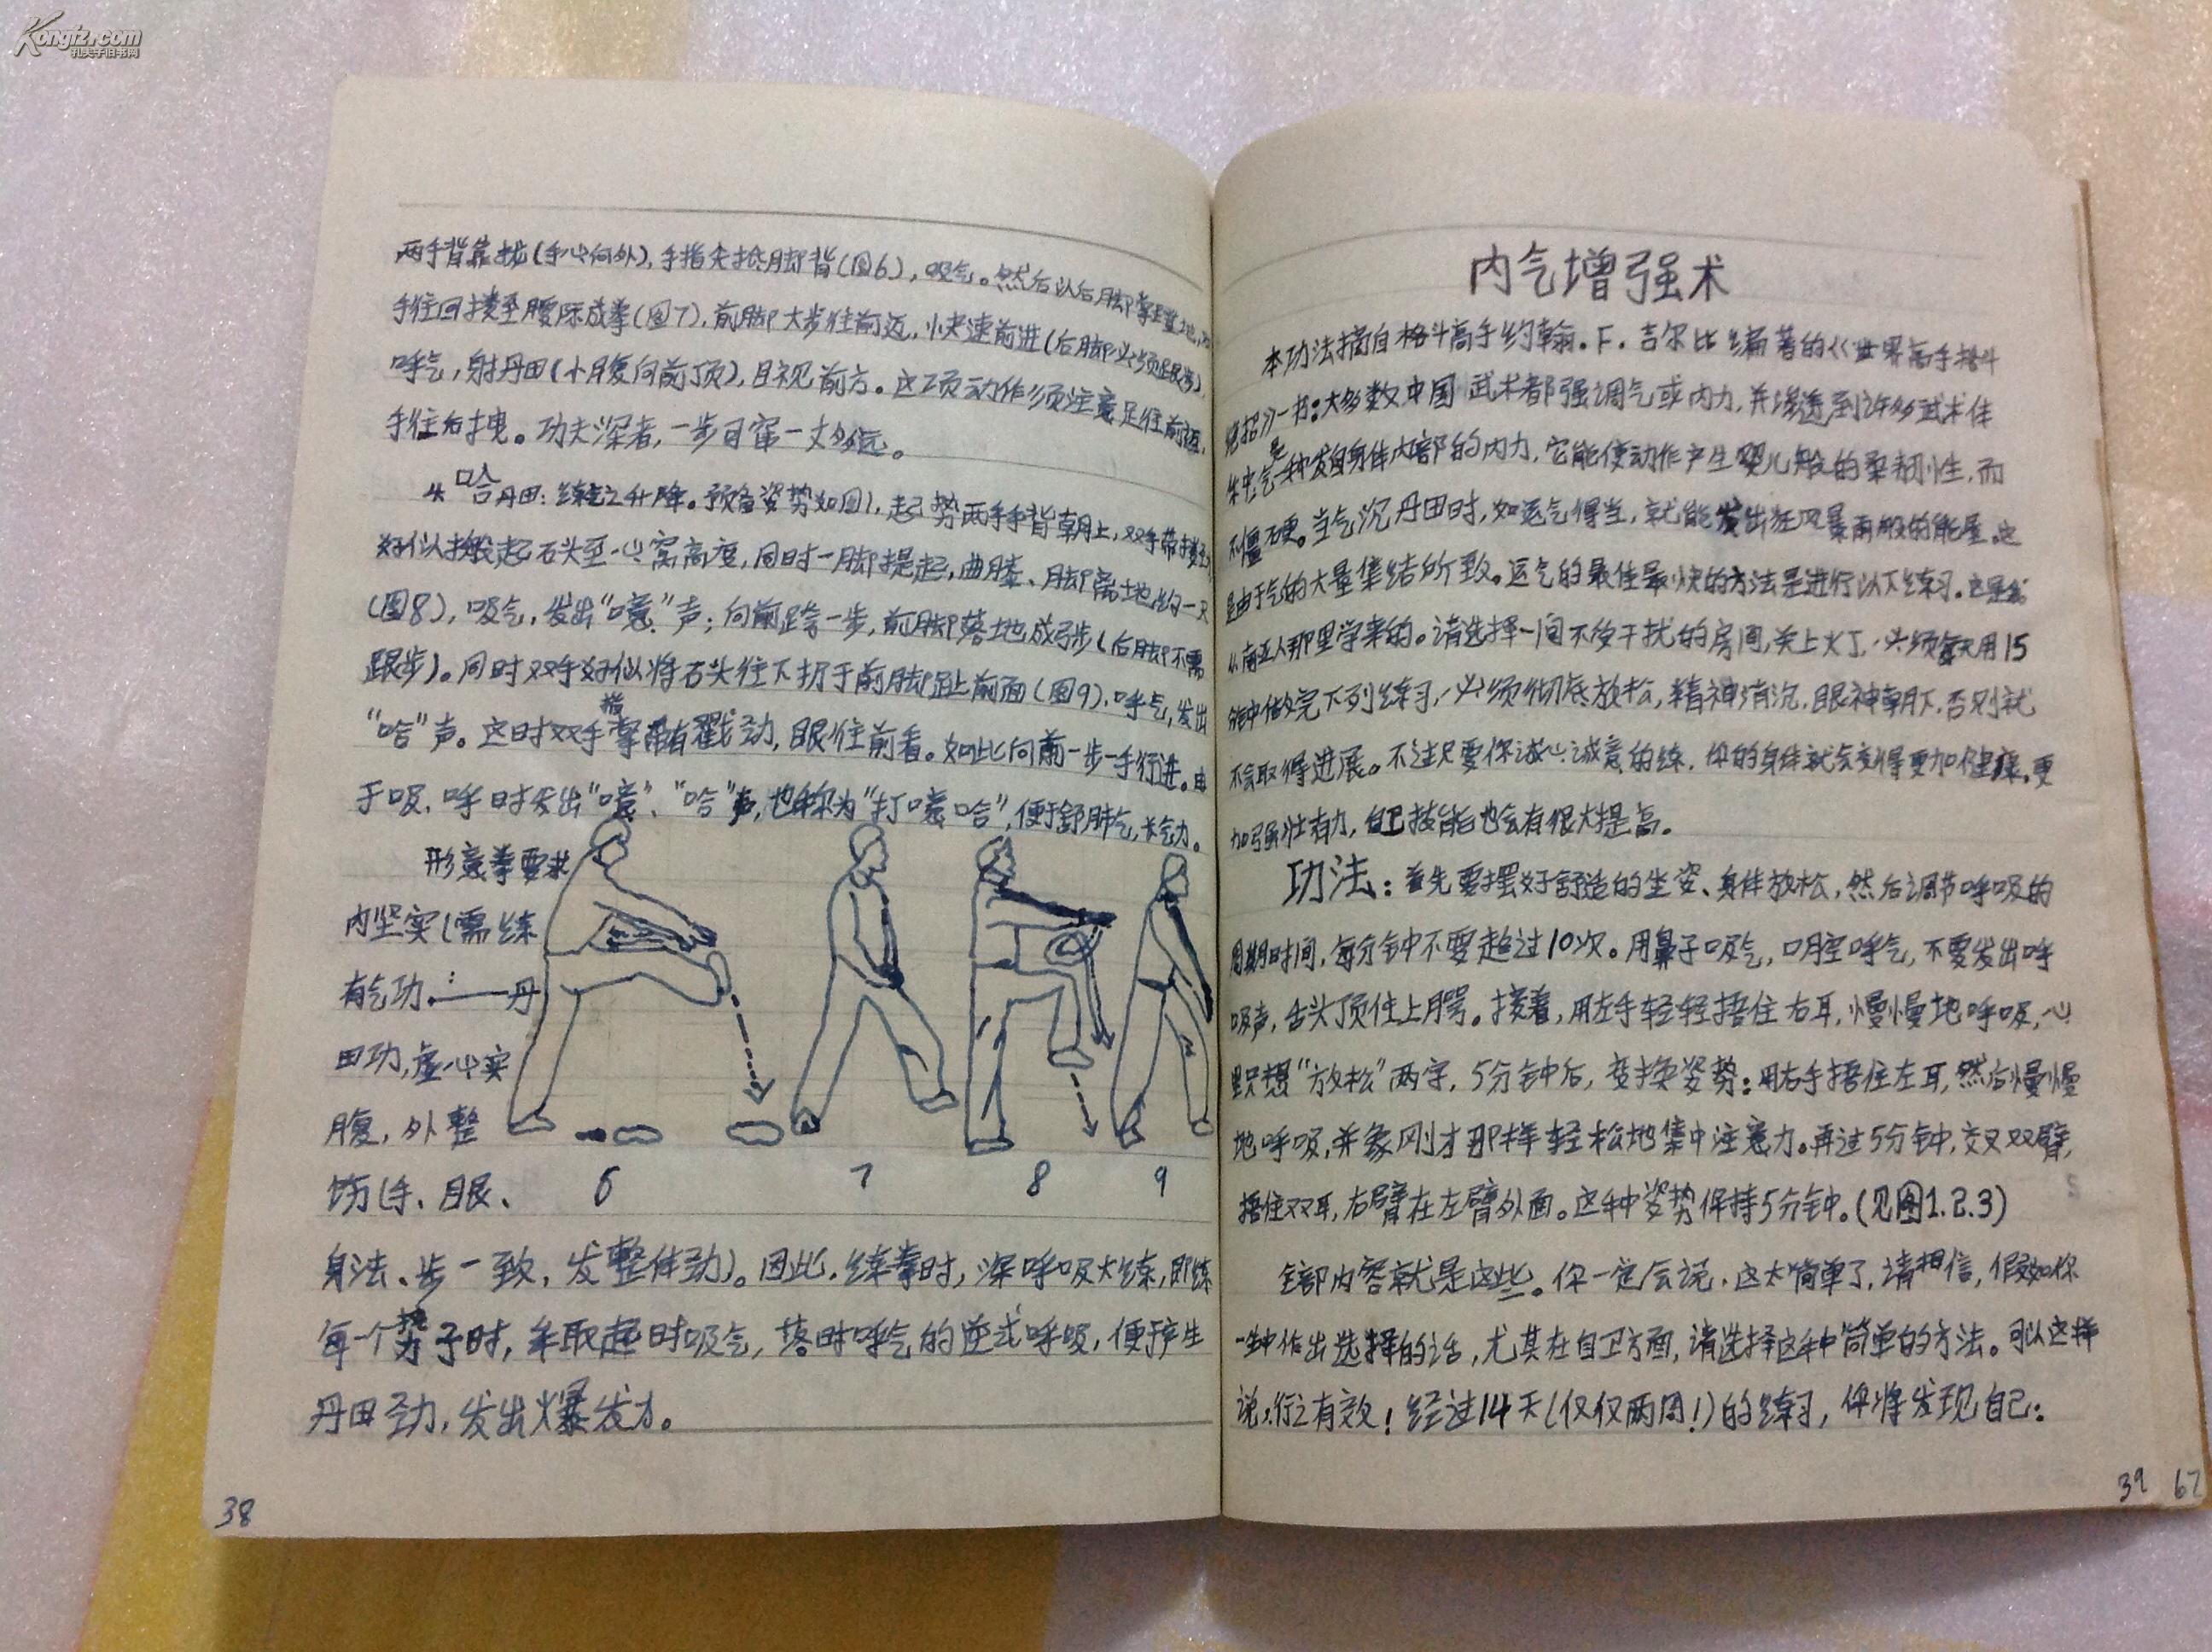 Kongfz.com
孔夫子旧书网
两手背靠拢(手心向外),手指尖抢脚背(图6),吸气。然后以后脚掌蹬地,
手往回搂至腰际成拳(图7),前脚大步往前迈,快速前进(后脚必须跟步),
呼气,射丹田(小腹向前顶),目视前方。这项动作须注意足往前迈,
手往后拽。功夫深者,一步可窜一丈多远。
4.哈丹田:练气之升降。预备姿势如图1,起势两手手背朝上,双手带搂
好似搬起石头至心窝高度,同时一脚提起,曲膝、脚离地约一尺
(图8),吸气,发出“噫”声;向前跨一步,前脚落地成弓步(后脚不需
跟步)。同时双手好似将石头往下扔于前脚趾前面(图9),呼气,发出
“哈”声。这时双手指掌带有戳劲,眼往前看。如此向前一步一手行进。由
于吸、呼时发出“噫”、“哈”声,也称为“打噫哈”,便于舒肺气,长气力。
形意拳要求
内坚实(需练
有气功.:——丹
田功,虚心实
腹,外整
饬(手、眼、
6 7 8 9
身法、步一致,发整体劲)。因此,练拳时,深呼吸大练,即练
每一个势子时,采取起时吸气,落时呼气的逆式呼吸,便产生
丹田劲,发出爆发力。
38
内气增强术
本功法摘自格斗高手约翰.F.吉尔比编著的《世界高手格斗
绝招》一书:大多数中国武术都强调气或内力,并渗透到许多武术体
系中,气是一种发自身体内部的内力,它能使动作产生婴儿般的柔韧性,而
不僵硬。当气沉丹田时,如运气得当,就能发出狂风暴雨般的能量,这
是由于气的大量集结所致。运气的最佳最快的方法是进行以下练习。这是我
从南亚人那里学来的。请选择一间不受干扰的房间,关上火丁,必须每天用15
分钟做完下列练习,必须彻底放松,精神消沉,眼神朝下,否则就
不会取得进展。不过只要你诚心诚意的练,你的身体就会变得更加健康,更
加强壮有力,自卫技能也会有很大提高。
功法:首先要摆好舒适的坐姿、身体放松,然后调节呼吸的
周期时间,每分钟中不要超过10次。用鼻子吸气,口腔呼气,不要发出呼
吸声,舌头顶住上腭。接着,用左手轻轻捂住右耳,慢慢地呼吸,心
里只想“放松”两字,5分钟后,变换姿势:用右手捂住左耳,然后慢慢
地呼吸,并象刚才那样轻松地集中注意力。再过5分钟,交叉双臂,
捂住双耳,右臂在左臂外面。这种姿势保持5分钟。(见图1.2.3)
全部内容就是这些。你一定会说,这太简单了,请相信,假如你
一生中作出选择的话,尤其在自卫方面,请选择这种简单的方法。可以这样
说,行之有效!经过14天(仅仅两周!)的练习,你将发现自己:
39 67